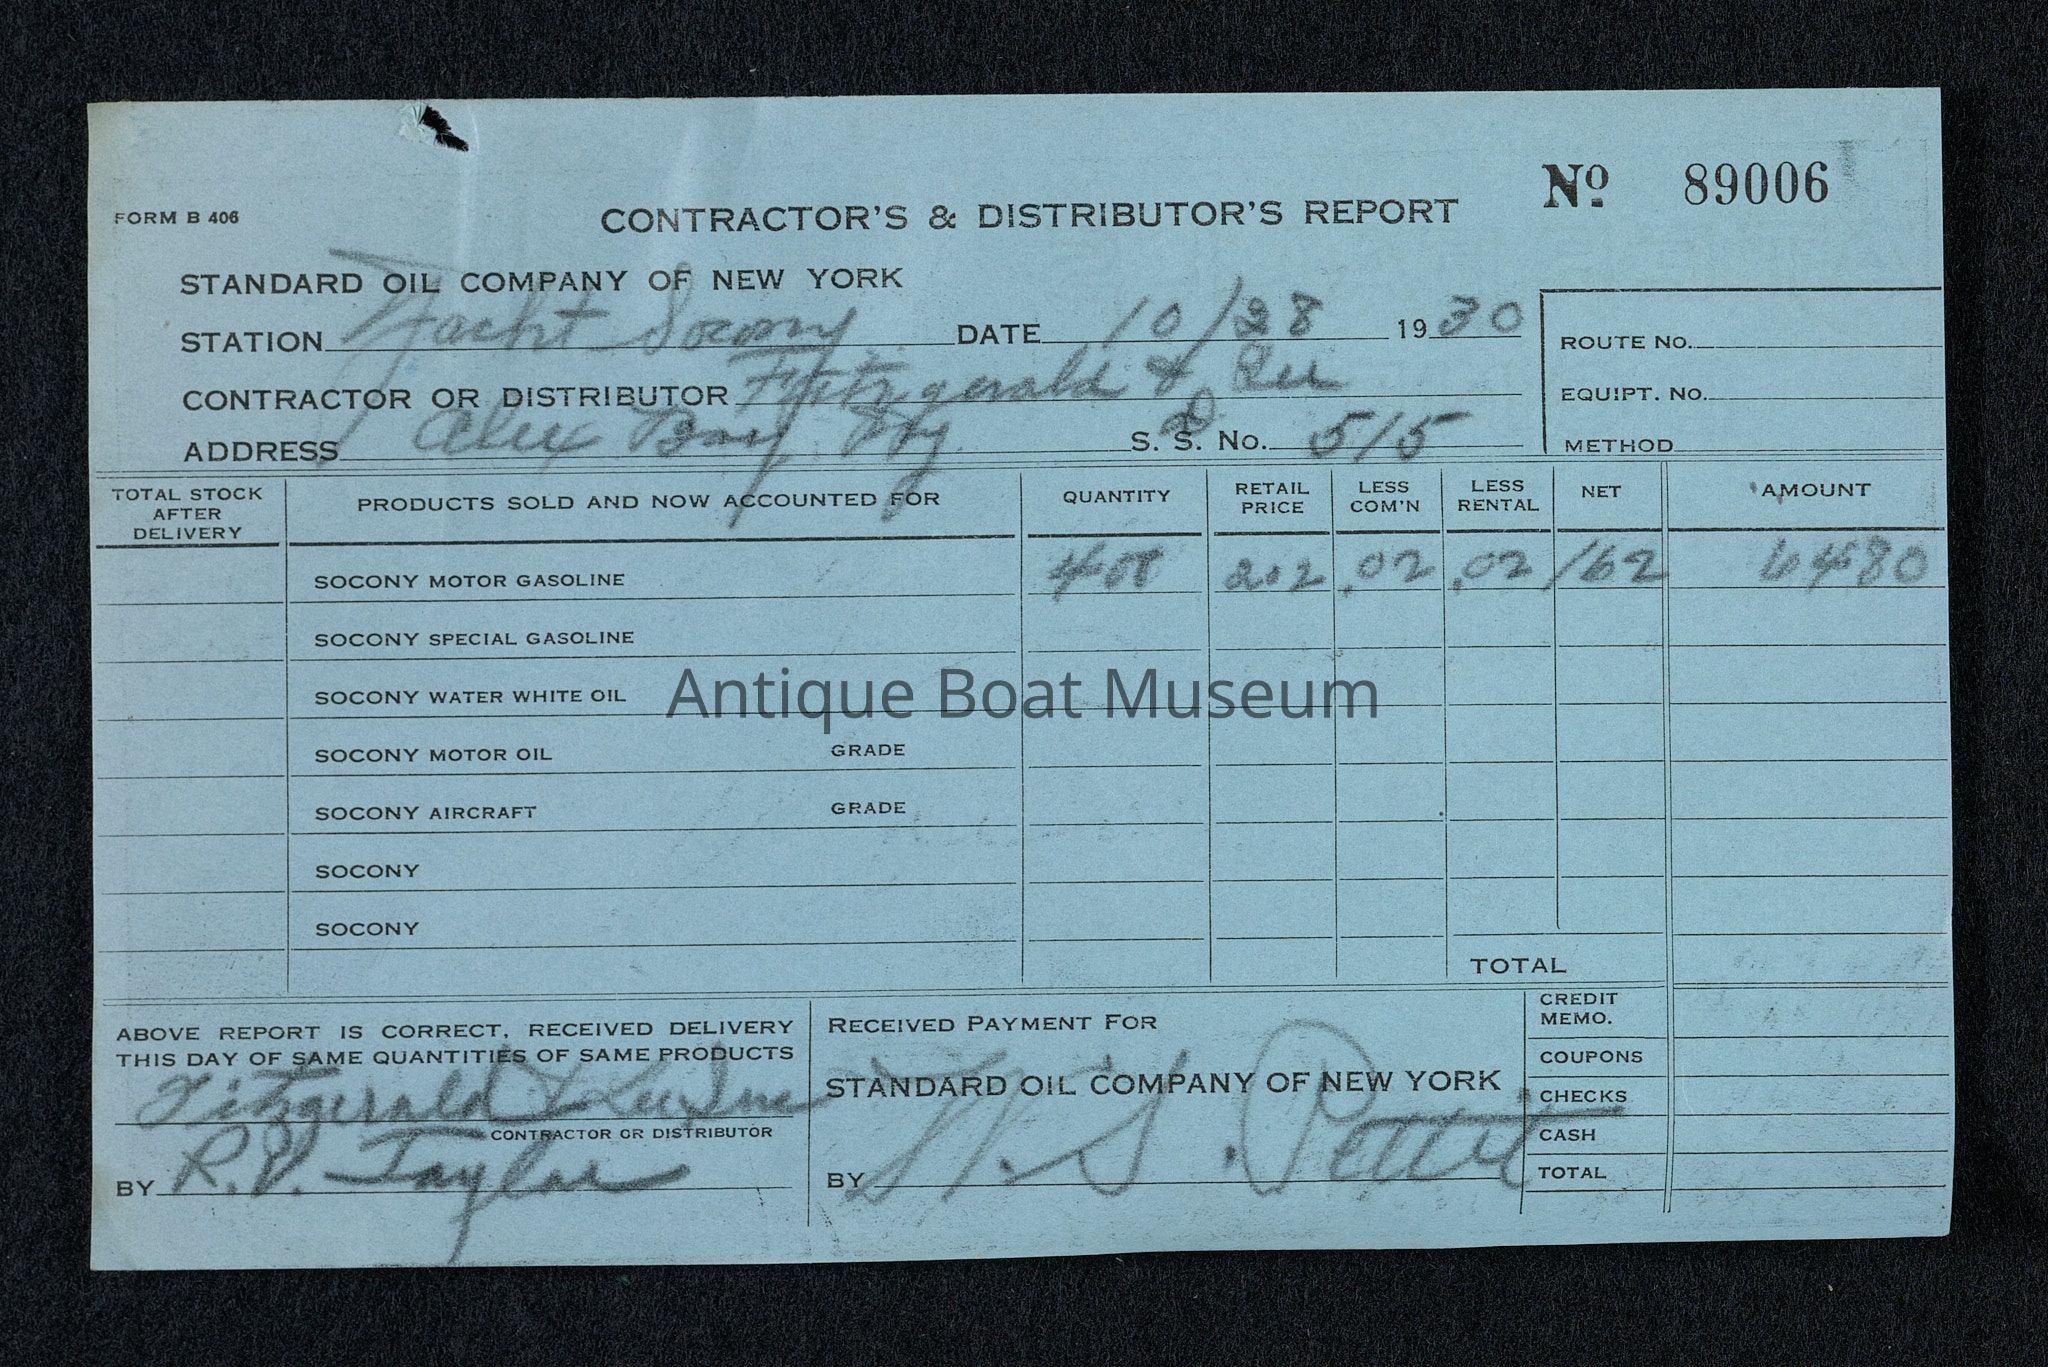 FORM B 406
CONTRACTOR'S & DISTRIBUTOR'S REPORT
No 89006
STANDARD OIL COMPANY OF NEW YORK
STATION Yacht Socony DATE 10/28 1930
ROUTE No.
CONTRACTOR OR DISTRIBUTOR Fitzgerald & Lee
EQUIPT. No.
ADDRESS Alex Bay NY S. S. No. 515
METHOD
TOTAL STOCK AFTER DELIVERY PRODUCTS SOLD AND NOW ACCOUNTED FOR QUANTITY RETAIL PRICE LESS COM'N LESS RENTAL NET AMOUNT
SOCONY MOTOR GASOLINE 400 202 .02 .02 162 6480
SOCONY SPECIAL GASOLINE
SOCONY WATER WHITE OIL
Antique Boat Museum
SOCONY MOTOR OIL GRADE
SOCONY AIRCRAFT GRADE
SOCONY
SOCONY
TOTAL
ABOVE REPORT IS CORRECT, RECEIVED DELIVERY
THIS DAY OF SAME QUANTITIES OF SAME PRODUCTS
Fitzgerald & Lee Inc
CONTRACTOR OR DISTRIBUTOR
BY R.V. Taylor
RECEIVED PAYMENT FOR
STANDARD OIL COMPANY OF NEW YORK
BY W. S. Pettit
CREDIT MEMO.
COUPONS
CHECKS
CASH
TOTAL